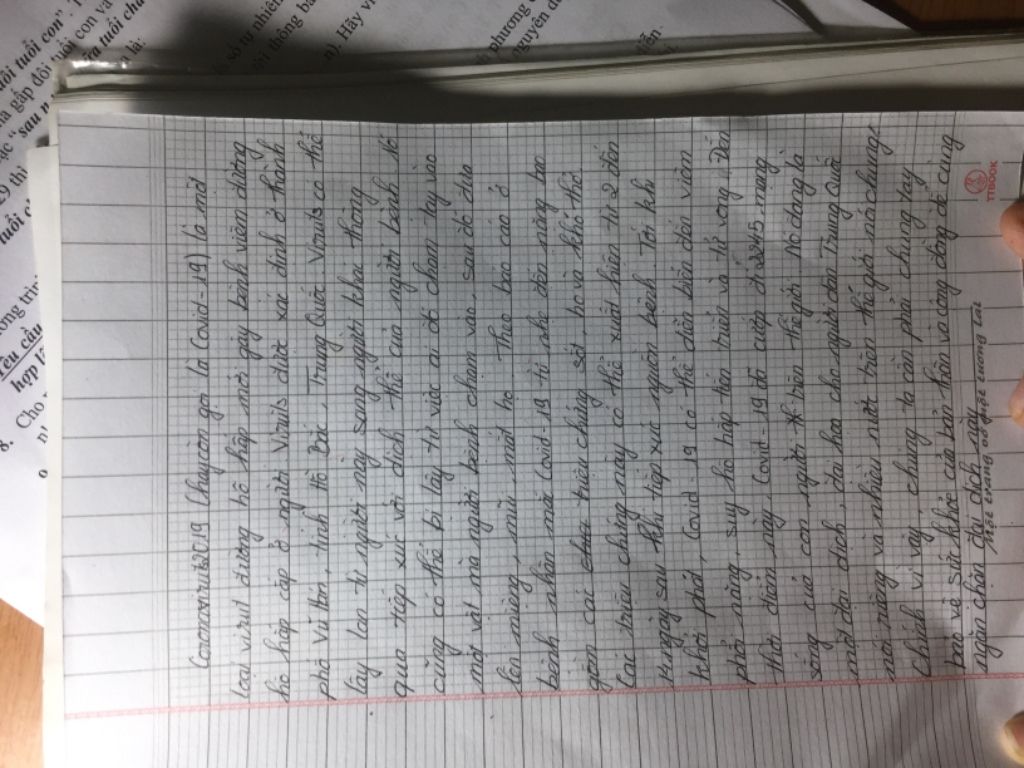 Coronavirus2019 (hay còn gọi là Covid-19) là một
loại virut đường hô hấp mới gây bệnh viêm đường
hô hấp cấp ở người Viruls được xác định ở thành
phố Vũ Hán, tỉnh Hồ Bắc, Trung Quốc Viruls có thể
lây lan từ người này sang người khác thông
qua tiếp xúc với dịch thể của người bệnh. Nó
cũng có thể bị lây từ việc ai đó chạm tay vào
một vật mà người bệnh chạm vào, sau đó đưa
lên miệng, mũi, mắt họ. Theo báo cáo ở
bệnh nhân mắc Covid-19 từ nhẹ đến nặng bao
gồm các triệu chứng sốt, ho và khó thở
Các triệu chứng này có thể xuất hiện từ 2 đến
14 ngày sau khi tiếp xúc nguồn bệnh. Tới khi
khởi phát, Covid-19 có thể diễn biến đến viêm
phổi nặng, suy hô hấp tiến triển và tử vong. Đến
thời điểm này, Covid-19 đã cướp đi 2245 mạng
sống của con người trên thế giới. Nó đang là
một đại dịch, đại họa cho người dân Trung Quốc
nói riêng và nhiều nước trên thế giới nói chung.
Chính vì vậy chúng ta cần phải chung tay
bảo vệ sức khỏe của bản thân và cộng đồng để cùng
ngăn chặn đại dịch này.
một trang vở một tương lai
TTBOOK
8. Cho
Yêu cầu
hợp l
uổi con".
a gấp đôi tuổi con và
n). Hãy vi
phương
nguyên d